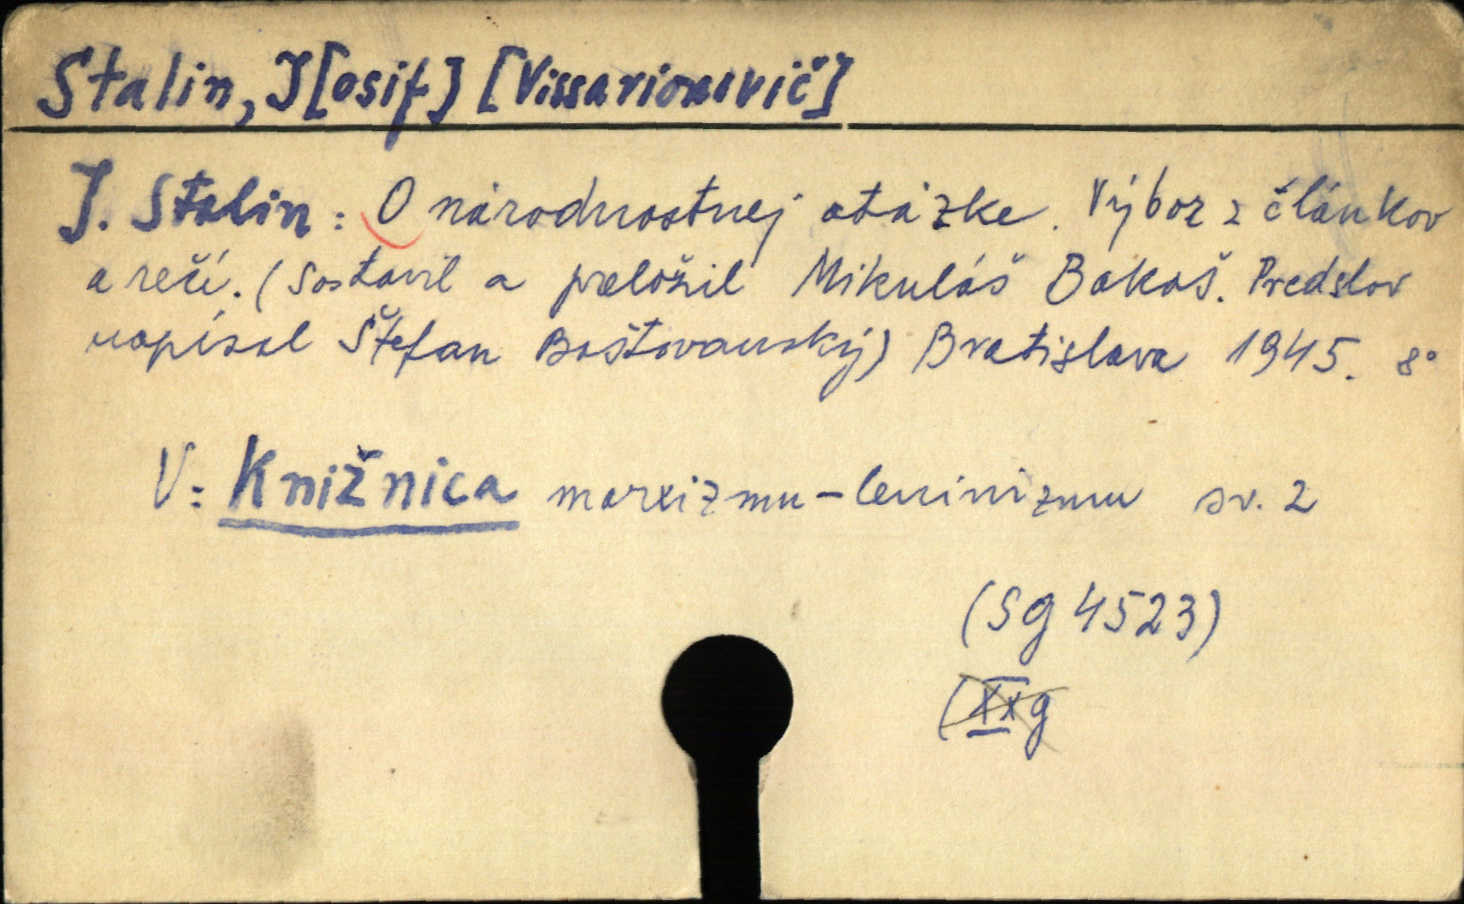 Stalin, J[osif] [Vissarionovič]
J. Stalin: O národnostnej otázke. Výbor z článkov
a rečí. (Sostavil a preložil Mikuláš Bakoš. Predslov
napísal Štefan Baštovanský) Bratislava 1945. 8°
V: Knižnica marxizmu-leninizmu sv. 2
(Sg 4523)